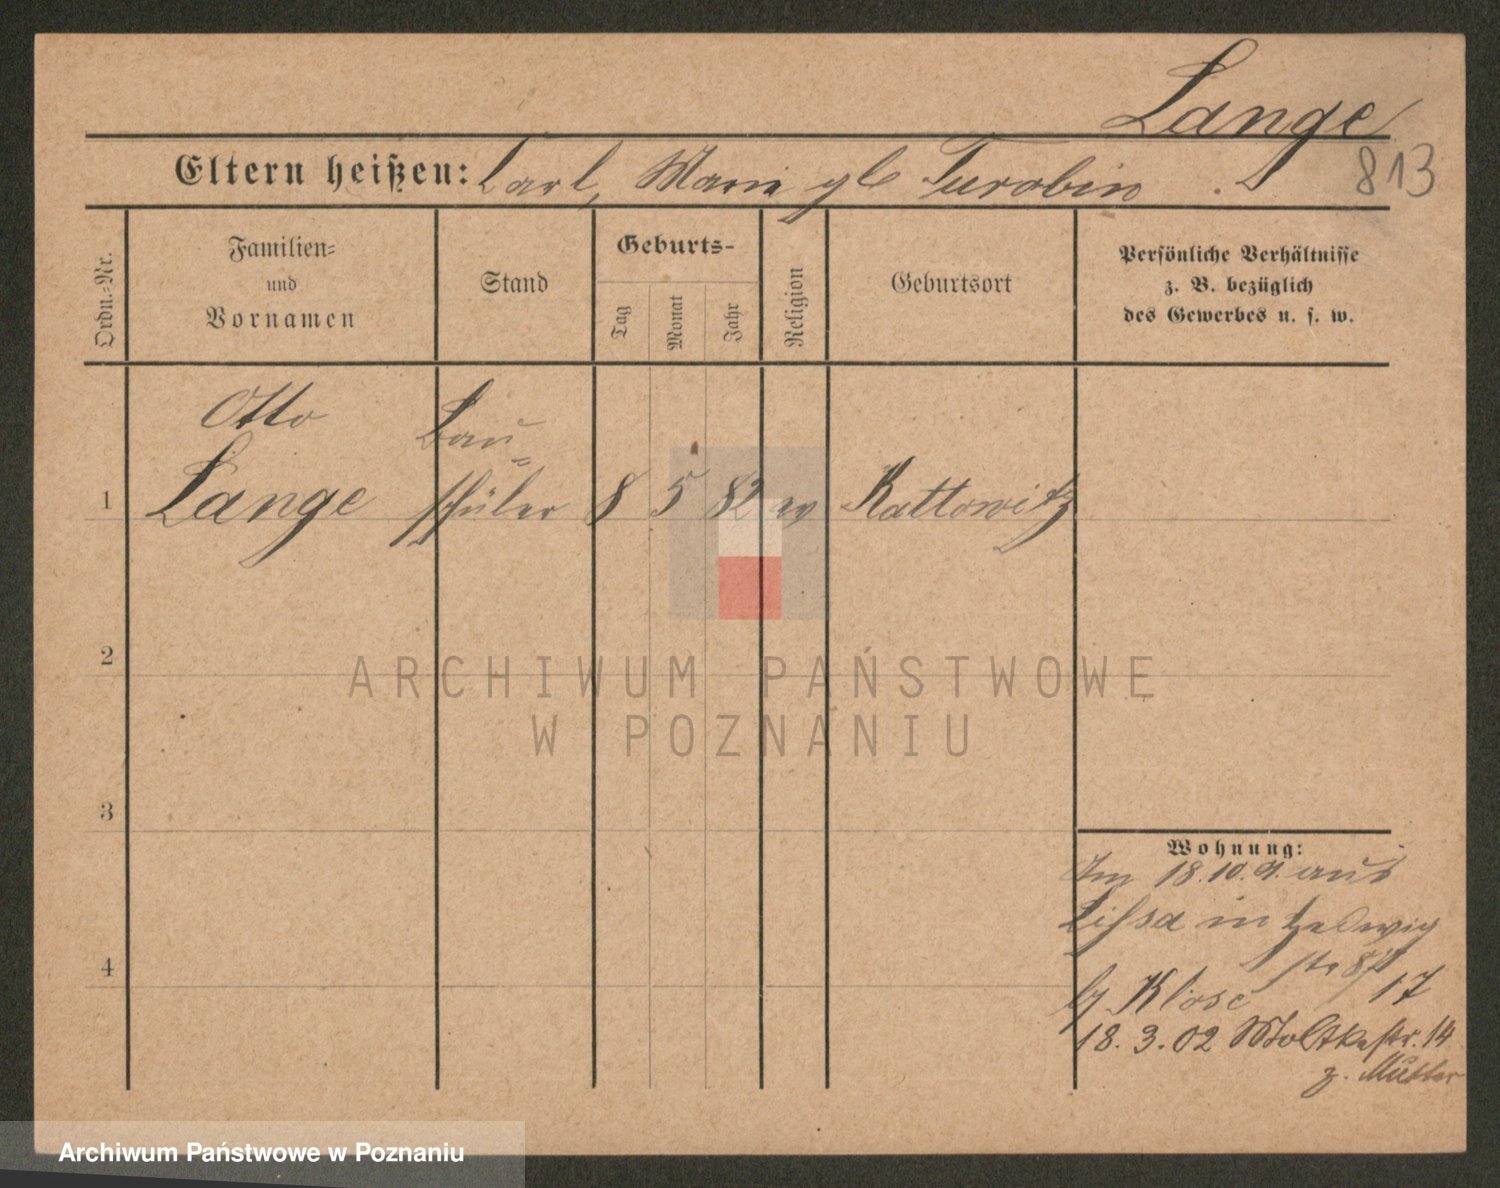 Lange
813
Eltern heißen: Carl, Marie gb Turobin
Ordn.-Nr.
Familien-
und
Vornamen
Stand
Geburts-
Tag
Monat
Jahr
Religion
Geburtsort
Persönliche Verhältnisse
z. B. bezüglich
des Gewerbes u. s. w.
Otto
Bau-
1 Lange schüler 8 5 82 ev Kattowitz
2
3
4
Wohnung:
Im 18.10.01. aus
Lissa in Hedwig
str
17
b/ Klose
18.3.02 Moltkestr. 14
z. Mutter
ARCHIWUM PAŃSTWOWE
W POZNANIU
Archiwum Państwowe w Poznaniu